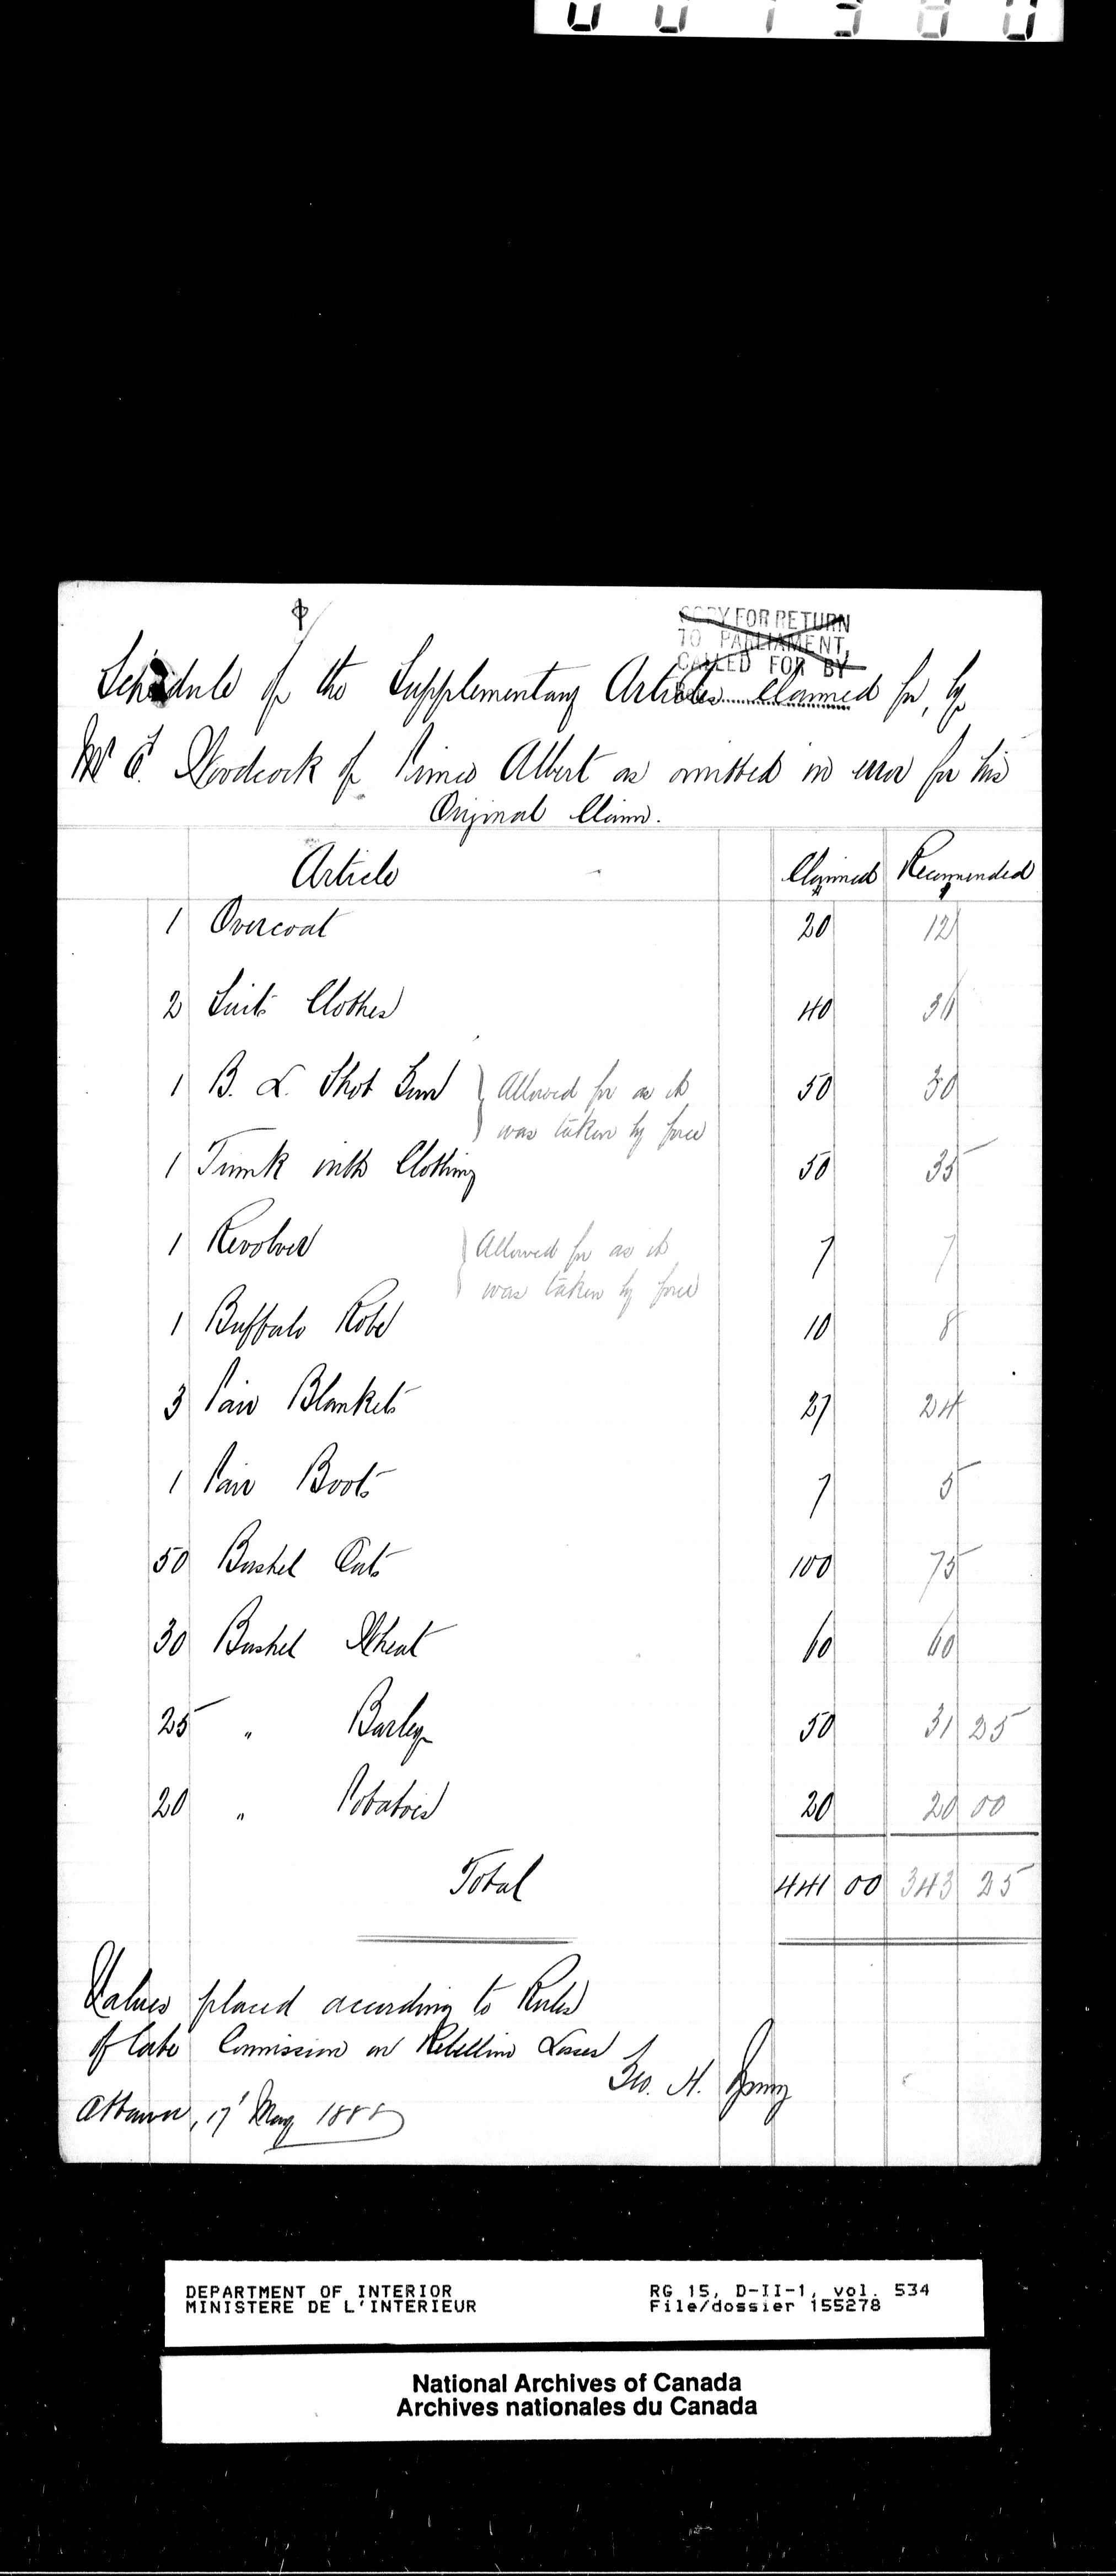 0 0 1 3 8 0
COPY FOR RETURN
TO PARLIAMENT,
CALLED FOR BY
Schedule of the Supplementary Articles Claimed for, by
Mr E. Woodcock of Prince Albert as omitted in error for his
Original Claim.
Article Claimed Recommended
$ $
1 Overcoat 20 12
2 Suits Clothes 40 36
1 B. L. Shot Gun } Allowed for as it 50 30
was taken by force
1 Trunk with Clothing 50 35
1 Revolver } Allowed for as it 7 7
was taken by force
1 Buffalo Robe 10 8
3 Pair Blankets 27 24
1 Pair Boots 7 5
50 Bushel Oats 100 75
30 Bushel Wheat 60 60
25 " Barley 50 31 25
20 " Potatoes 20 20 00
Total 441 00 343 25
Values placed according to Rules
of late Commission on Rebellion Losses
Geo. H. Young
Ottawa, 17' May 1888
DEPARTMENT OF INTERIOR RG 15, D-II-1, vol. 534
MINISTERE DE L'INTERIEUR File/dossier 155278
National Archives of Canada
Archives nationales du Canada